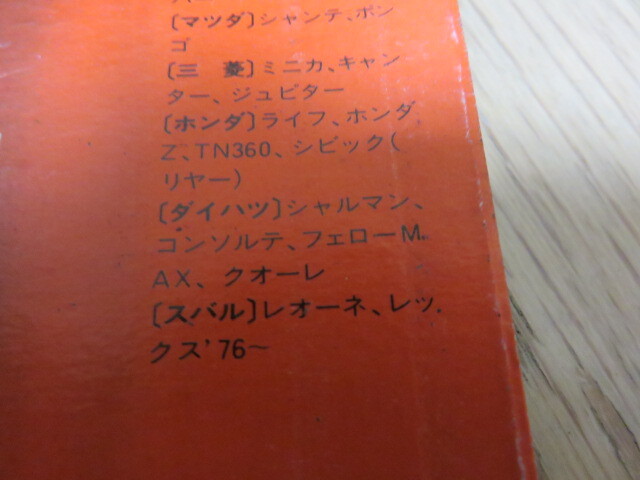 〔マツダ〕シャンテ、ボン
ゴ
〔三　菱〕ミニカ、キャン
ター、ジュピター
〔ホンダ〕ライフ、ホンダ
Z、TN360、シビック(
リヤー)
〔ダイハツ〕シャルマン、
コンソルテ、フェローM
AX、クオーレ
〔スバル〕レオーネ、レッ
クス'76〜